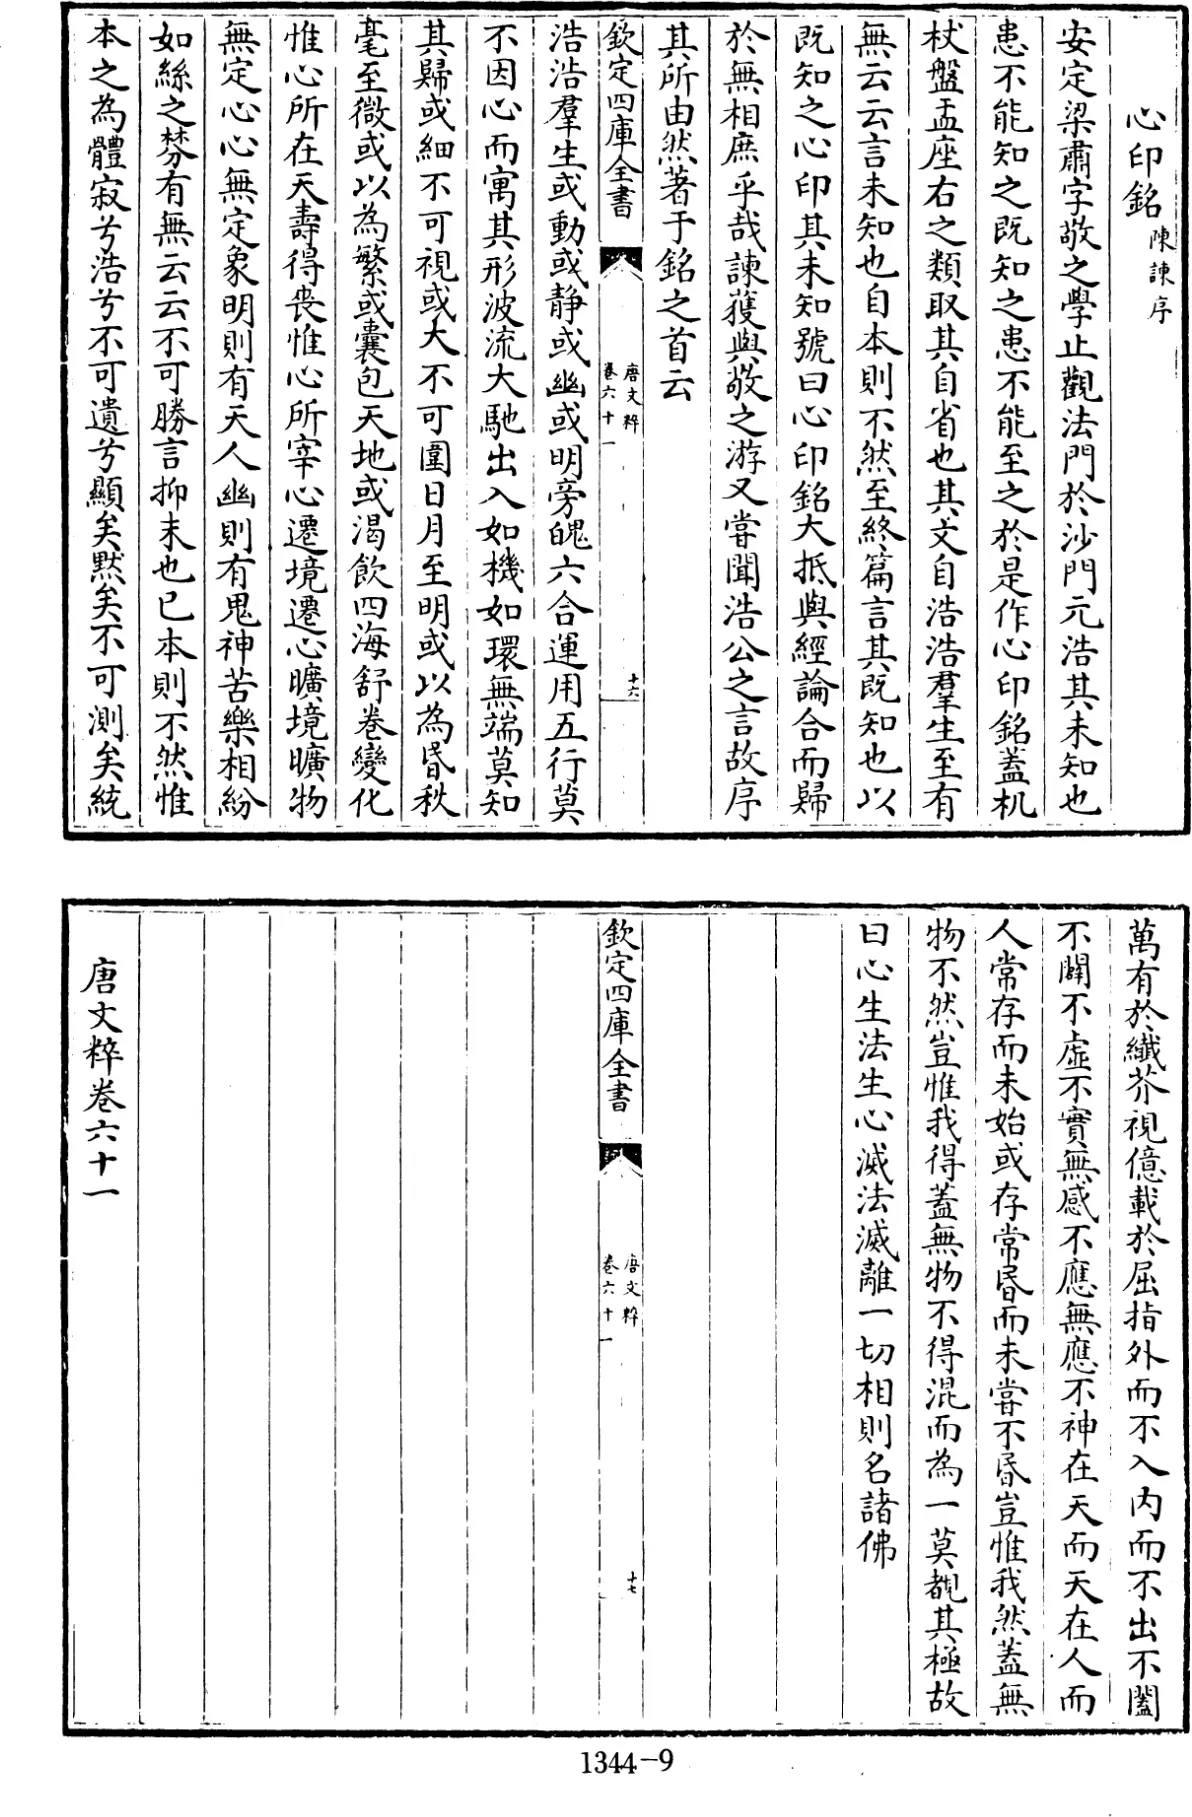 心印銘陳諫序
安定梁肅字敬之學止觀法門於沙門元浩其未知也
患不能知之既知之患不能至之於是作心印銘蓋机
杖盤盂座右之類取其自省也其文自浩浩羣生至有
無云云言未知也自本則不然至終篇言其既知也以
既知之心印其未知號曰心印銘大抵與經論合而歸
於無相庶乎哉諫獲與敬之游又嘗聞浩公之言故序
其所由然著于銘之首云
欽定四庫全書
唐文粹
卷六十一
十六
浩浩羣生或動或靜或幽或明旁魄六合運用五行莫
不因心而寓其形波流大馳出入如機如環無端莫知
其歸或細不可視或大不可圍日月至明或以為昏秋
毫至微或以為繁或囊包天地或渴飲四海舒卷變化
惟心所在夭壽得喪惟心所宰心遷境遷心曠境曠物
無定心心無定象明則有天人幽則有鬼神苦樂相紛
如絲之棼有無云云不可勝言抑末也已本則不然惟
本之為體寂兮浩兮不可遺兮顯矣黙矣不可測矣統
萬有於纖芥視億載於屈指外而不入內而不出不闔
不闢不虛不實無感不應無應不神在天而天在人而
人常存而未始或存常昏而未嘗不昏豈惟我然蓋無
物不然豈惟我得蓋無物不得混而為一莫覩其極故
曰心生法生心滅法滅離一切相則名諸佛
欽定四庫全書
唐文粹
卷六十一
十七
唐文粹卷六十一
1344-9